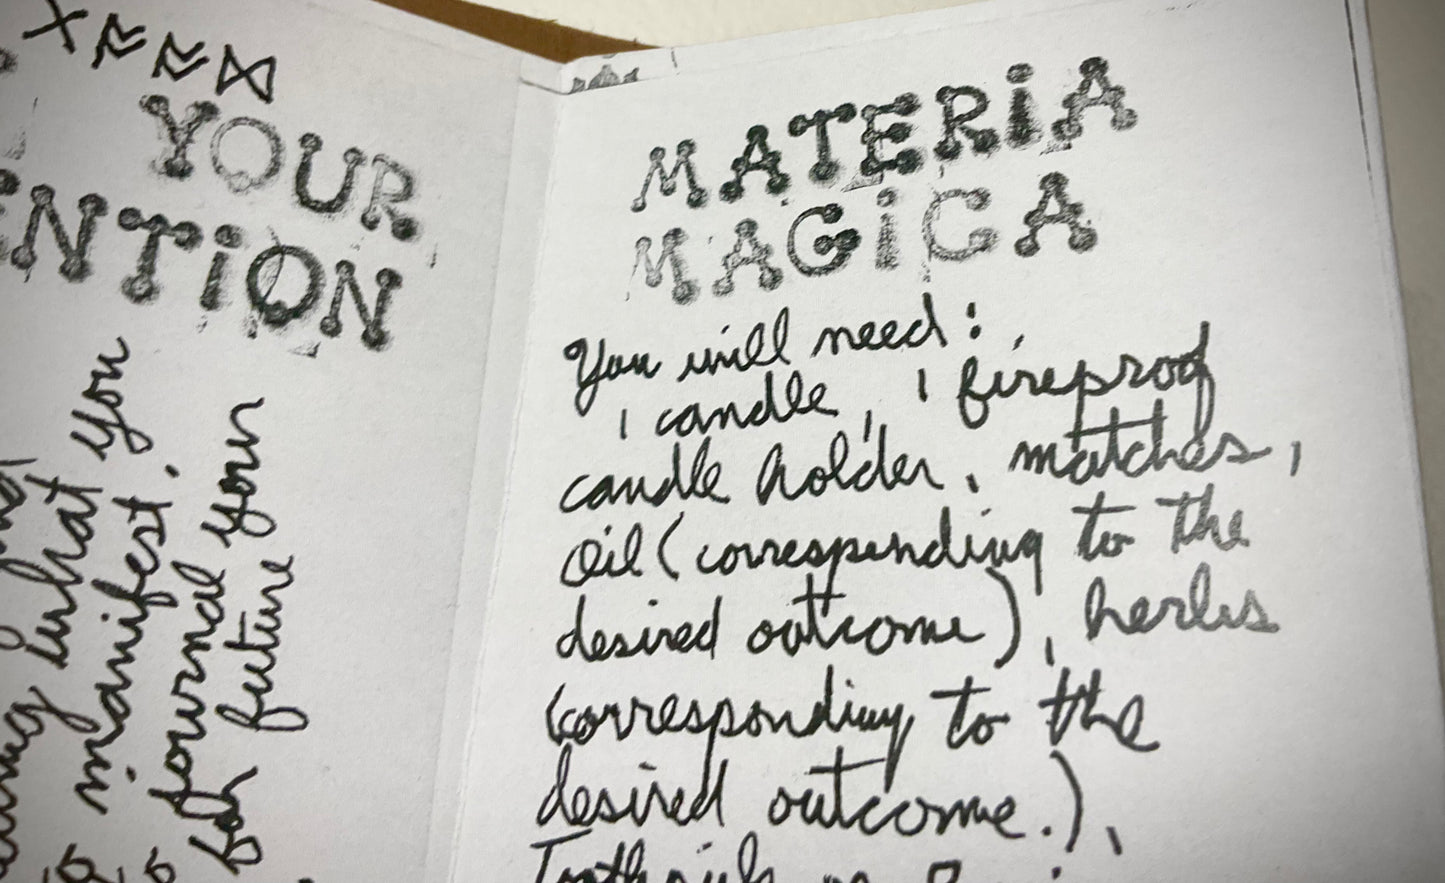 YOUR
NTION
what you
manifest.
journal your
for future
MATERiA
MAGiCA
You will need:
1 candle, 1 fireproof
candle holder, matches,
oil (corresponding to the
desired outcome), herbs
(corresponding to the
desired outcome.),